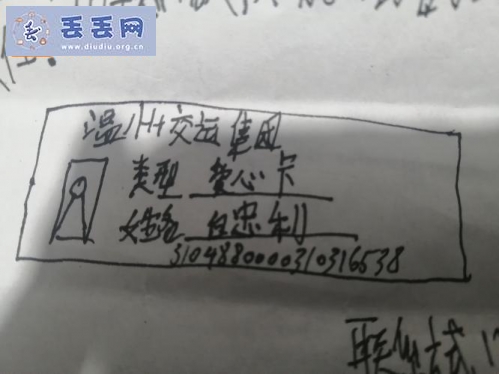 丢丢网
www.diudiu.org.cn
温州交运集团
类型 爱心卡
姓名 白忠利
3104880000310316538
联系方式